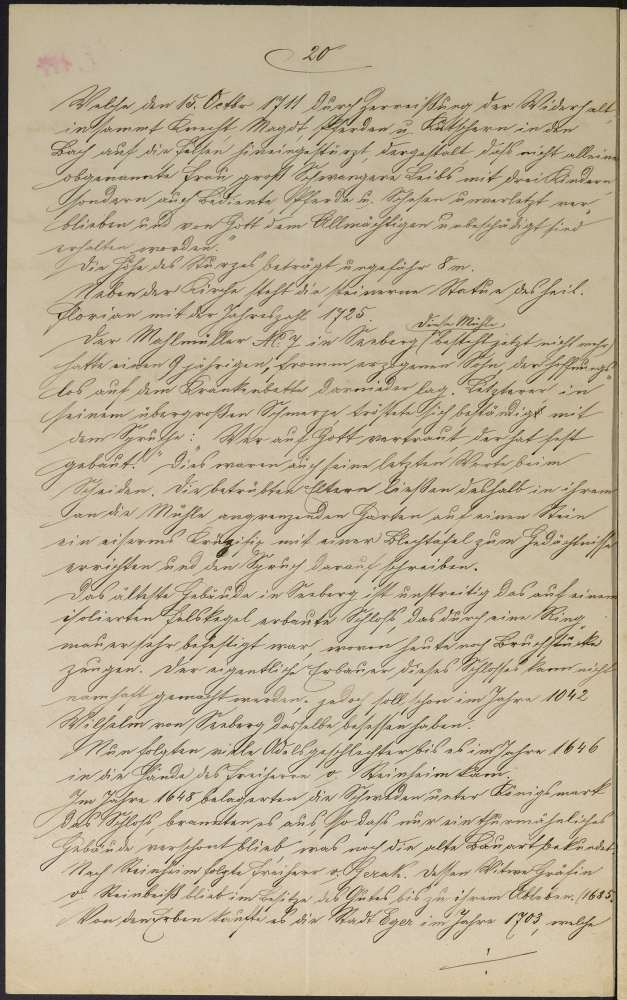 20
Welche den 15. Octbr 1711 durch Zerreißung der Widerhalt
in sammt Knecht Magdt, Pferden u. Kutschern in den
Bach auf die Felsen hineingestürzt, dergestalt, daß nicht alleine
obgenannte Frau groß Schwangere Leibs mit drei Kindern,
sondern auch Bediente, Pferde u. Schesen unverletzt ver„
blieben und von Gott dem Allmächtigen unbeschädigt sind
erhalten worden."
Die Höhe des Sturzes beträgt ungefähr 8 m.
Neben der Kirche steht die steinerne Statue des heil.
Florian mit der Jahreszahl 1725.
Der Mahlmüller No 7 in Seeberg (diese Mühle besteht jetzt nicht mehr)
hatte einen 9 jährigen, fromm erzogenen Sohn, der hoffnungs„
los auf dem Krankenbette darnieder lag. Letzterer, in
seinem übergroßen Schmerze tröstete sich beständigt mit
dem Spruche: „Wer auf Gott vertraut, der hat fest
gebaut." Dies waren auch seine letzten Worte beim
Scheiden. Die betrübten Eltern ließen deshalb in ihrem
an die Mühle angrenzenden Garten auf einen Stein
ein eisernes Kruzifix mit einer Blechtafel zum Gedächtnisse
errichten und den Spruch darauf schreiben.
Das älteste Gebäude in Seeberg ist unstreitig das auf einem
isolierten Felskegel erbaute Schloß, das durch eine Ring„
mauer sehr befestigt war, wovon heute noch Bruchstücke
zeugen. Der eigentliche Erbauer dieses Schlosses kann nicht
namhaft gemacht werden, jedoch soll schon im Jahre 1042
Wilhelm von Seeberg dasselbe besessen haben.
Nun folgten viele Adelsgeschlechter bis es im Jahre 1646
in die Hände des Freiherrn v. Steinheim kam.
Im Jahre 1648 belagerten die Schweden unter Königsmark
das Schloß, brannten es aus, so daß nur ein thurmähnliches
Gebäude verschont blieb, was noch die alte Bauart bekundet.
Nach Steinheim folgte Freiherr v. Dessen Witwe Gräfin
v. Steinbeiß blieb im Besitze des Gutes bis zu ihrem Ableben. (1685.
Von den Erben kaufte es die Stadt Eger im Jahre 1703, welche